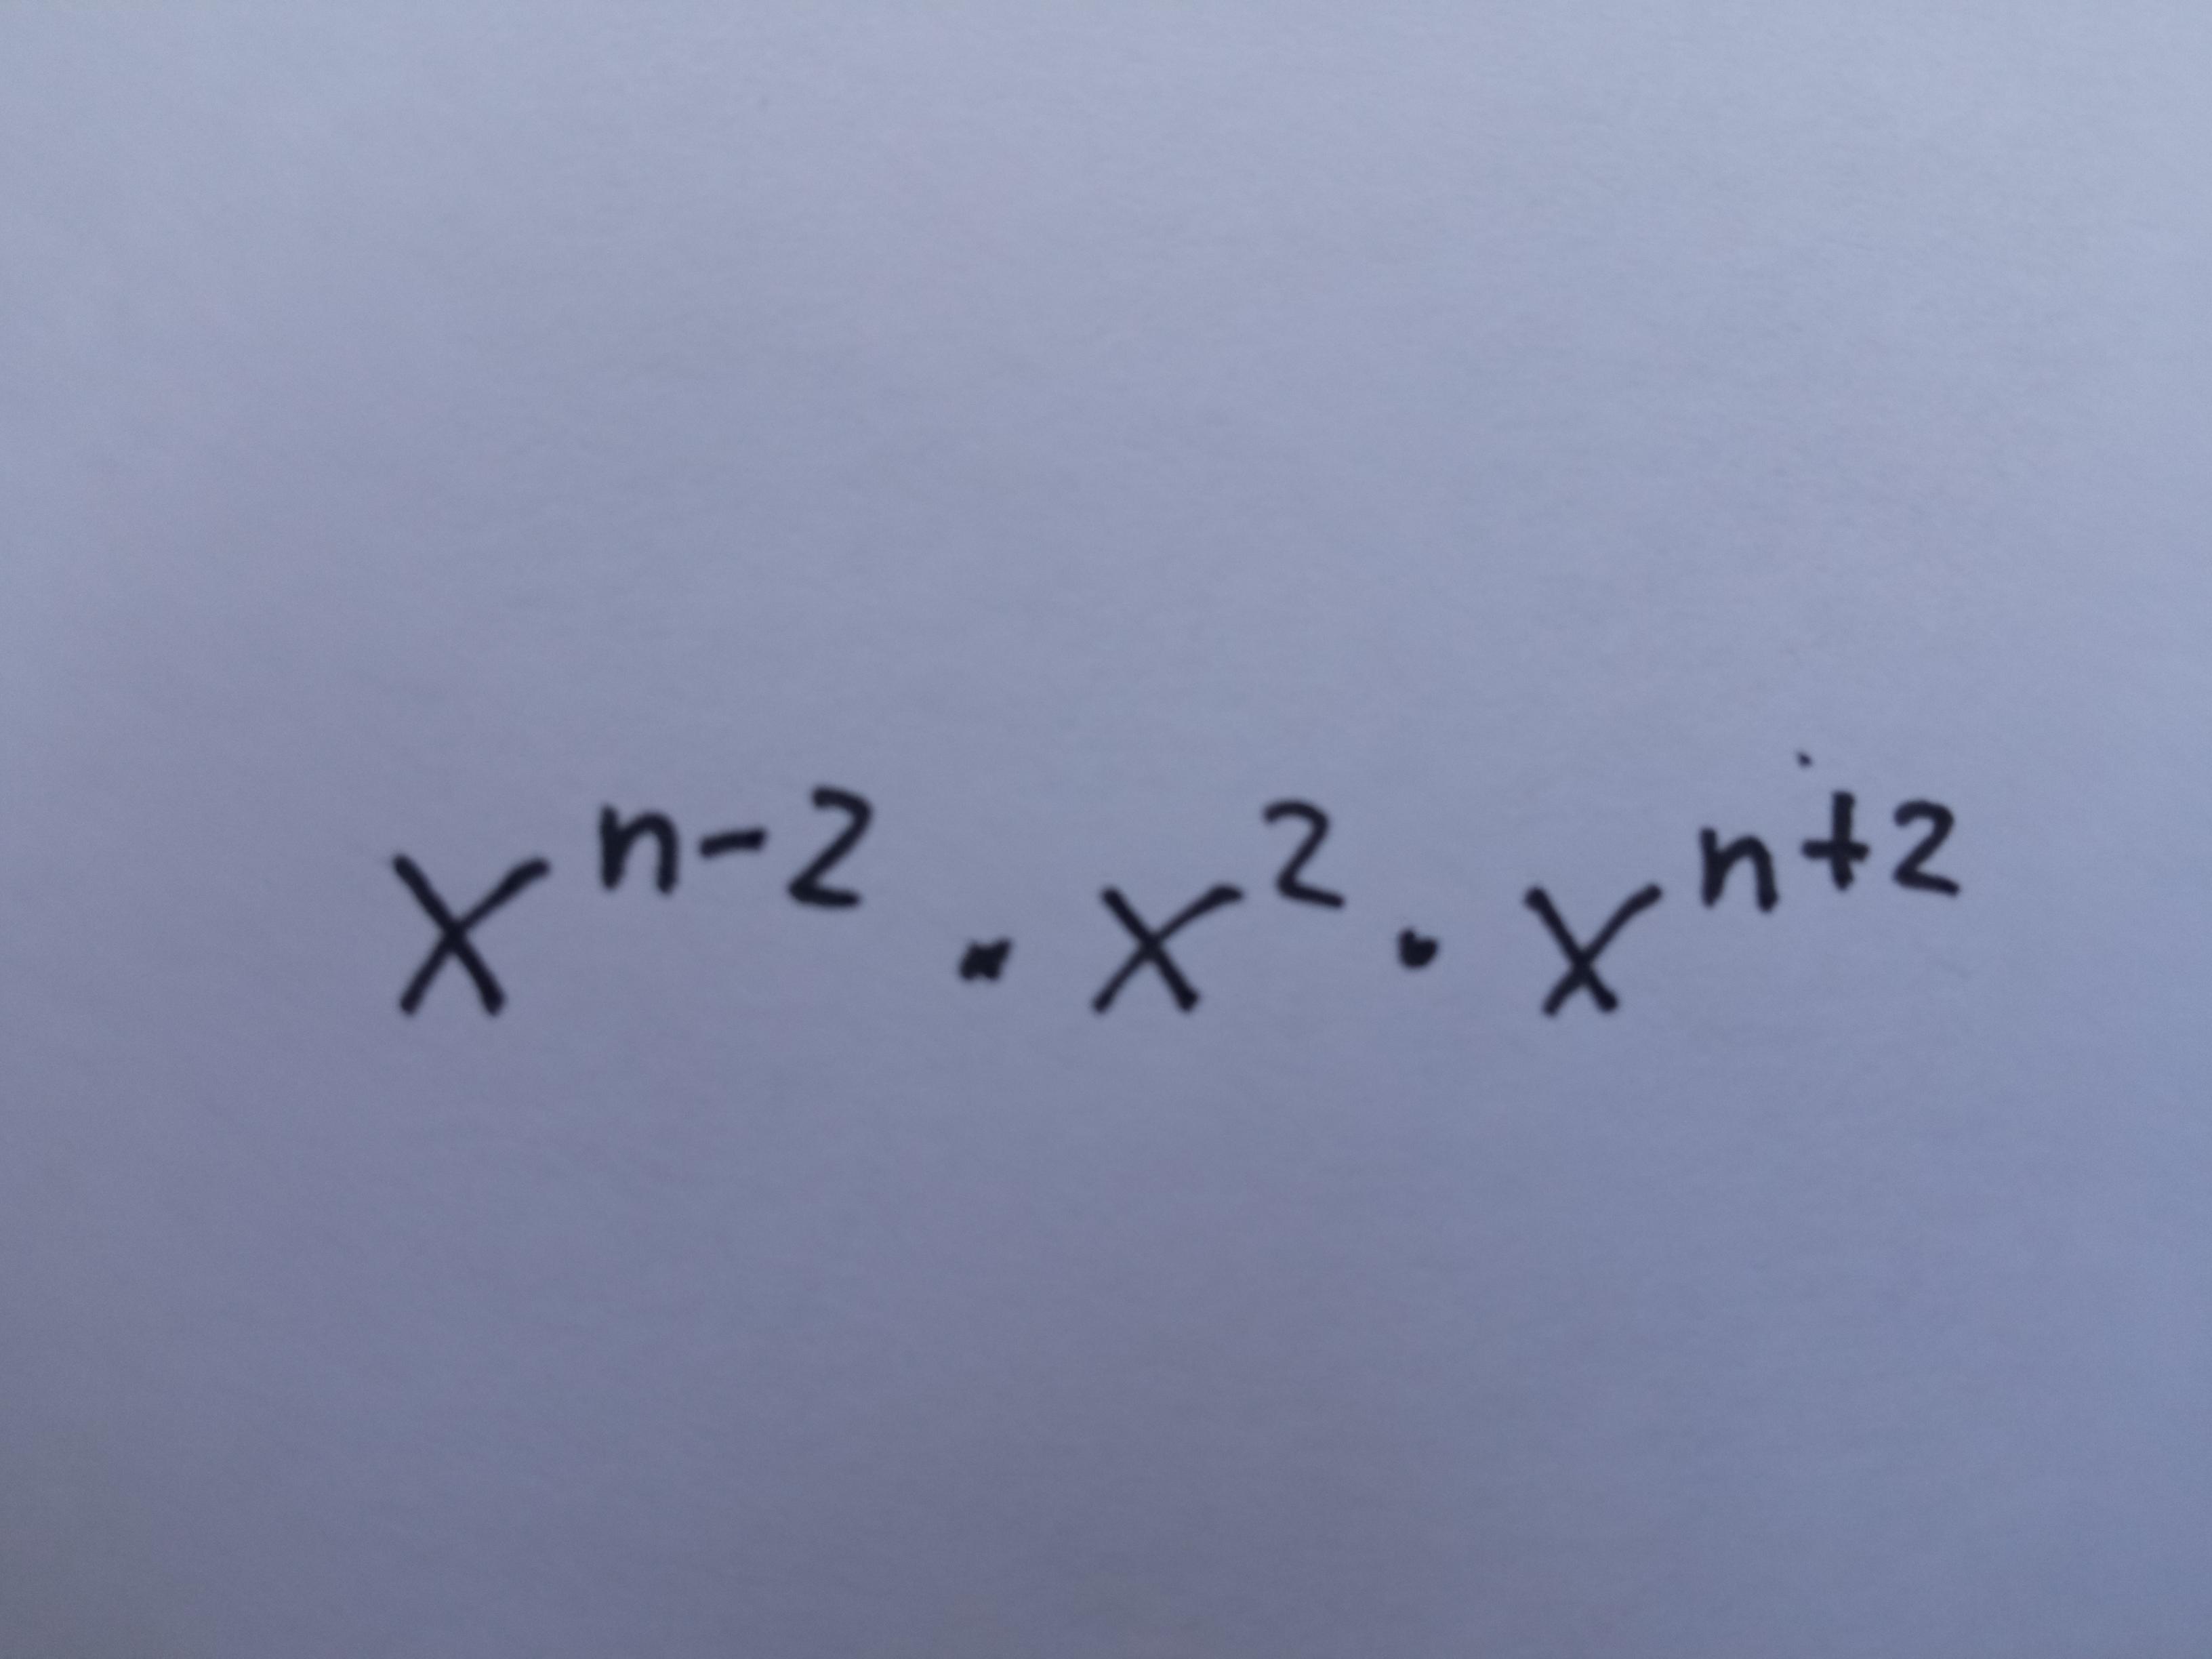 x^{n-2} · x^2 · x^{n+2}